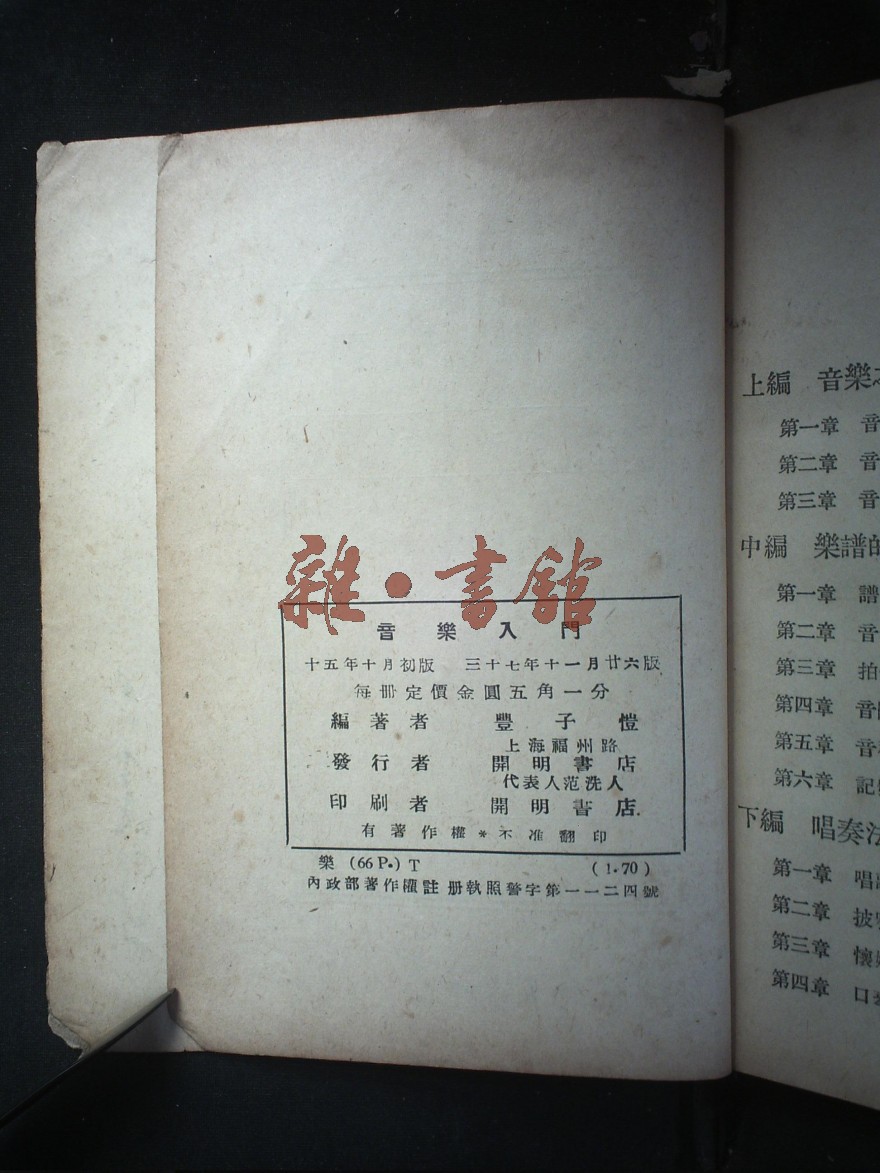 雜·書館
音樂入門
十五年十月初版 三十七年十一月廿六版
每册定價金圓五角一分
編著者 豐子愷
上海福州路
發行者 開明書店
代表人范洗人
印刷者 開明書店
有著作權*不准翻印
樂 (66P.) T (1.70)
內政部著作權註册執照警字第一一二四號
上編 音樂
第一章 音
第二章 音
第三章 音
中編 樂譜的
第一章 譜
第二章 音
第三章 拍
第四章 音
第五章 音
第六章 記
下編 唱奏法
第一章 唱
第二章 披
第三章 懷
第四章 口